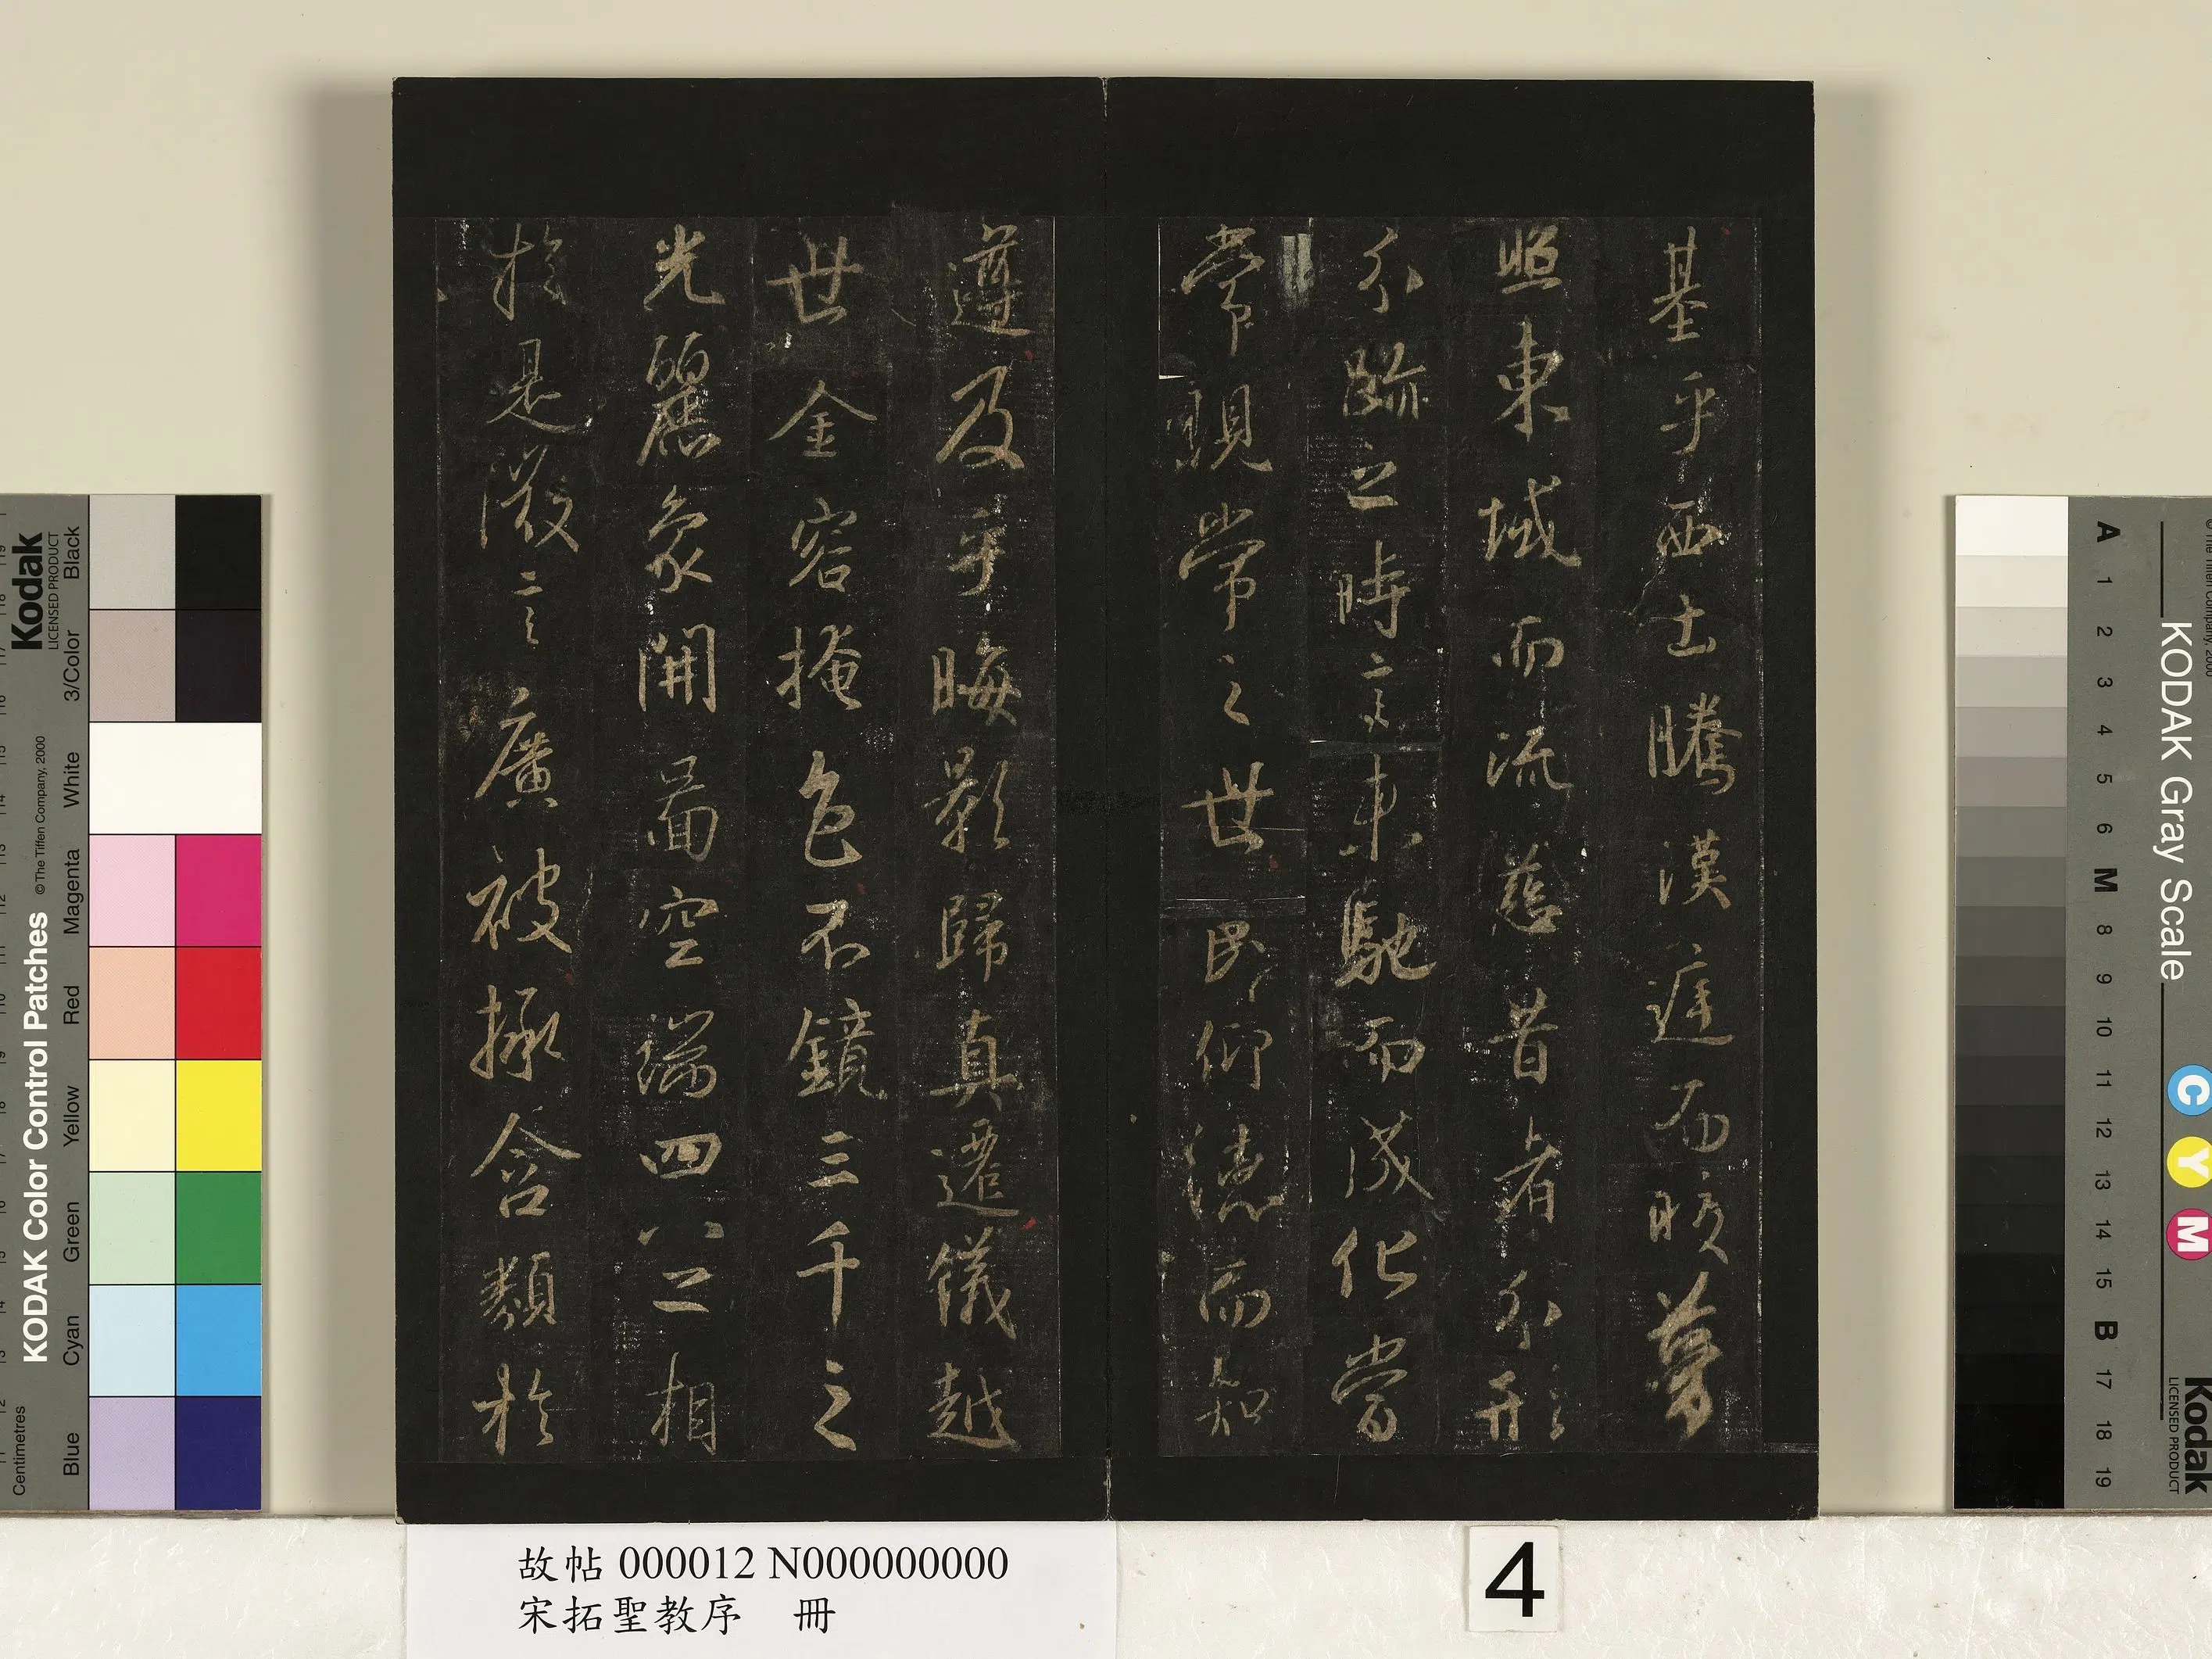 基乎西土騰漢庭而皎夢
照東域而流慈昔者分形
分跡之時言未馳而成化當
常現常之世民仰德而知
遵及乎晦影歸真遷儀越
世金容掩色不鏡三千之
光麗象開圖空端四八二相
於是微言廣被拯含類於
故帖 000012 N000000000
宋拓聖教序 冊
4
KODAK Color Control Patches
©The Tiffen Company, 2000
Kodak
LICENSED PRODUCT
Black
3/Color
White
Magenta
Red
Yellow
Green
Cyan
Blue
Centimetres
KODAK Gray Scale
A 1 2 3 4 5 6 M 8 9 10 11 12 13 14 15 B 17 18 19
C Y M
Kodak
LICENSED PRODUCT